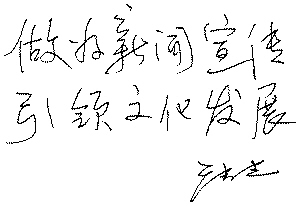 做好新闻宣传
引领文化发展